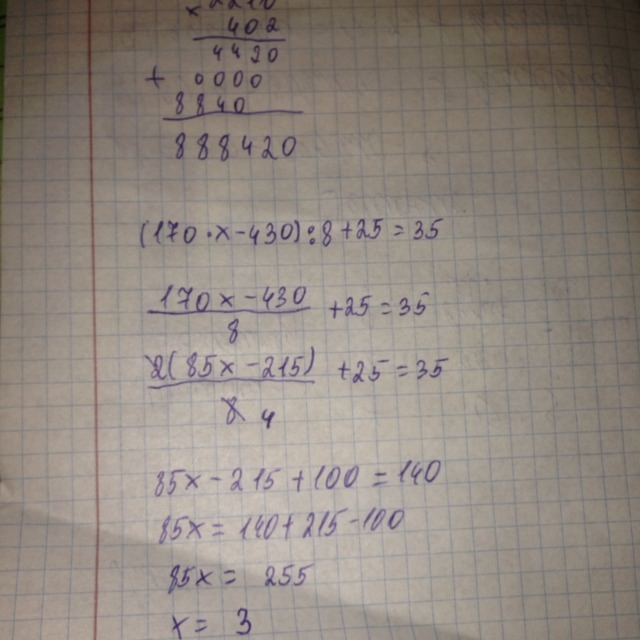 × 2210
402
4420
+ 0000
8840
888420
(170·x-430):8+25=35
170x-430 / 8 +25=35
2(85x-215) / 8 4 +25=35
85x-215+100=140
85x=140+215-100
85x= 255
x= 3